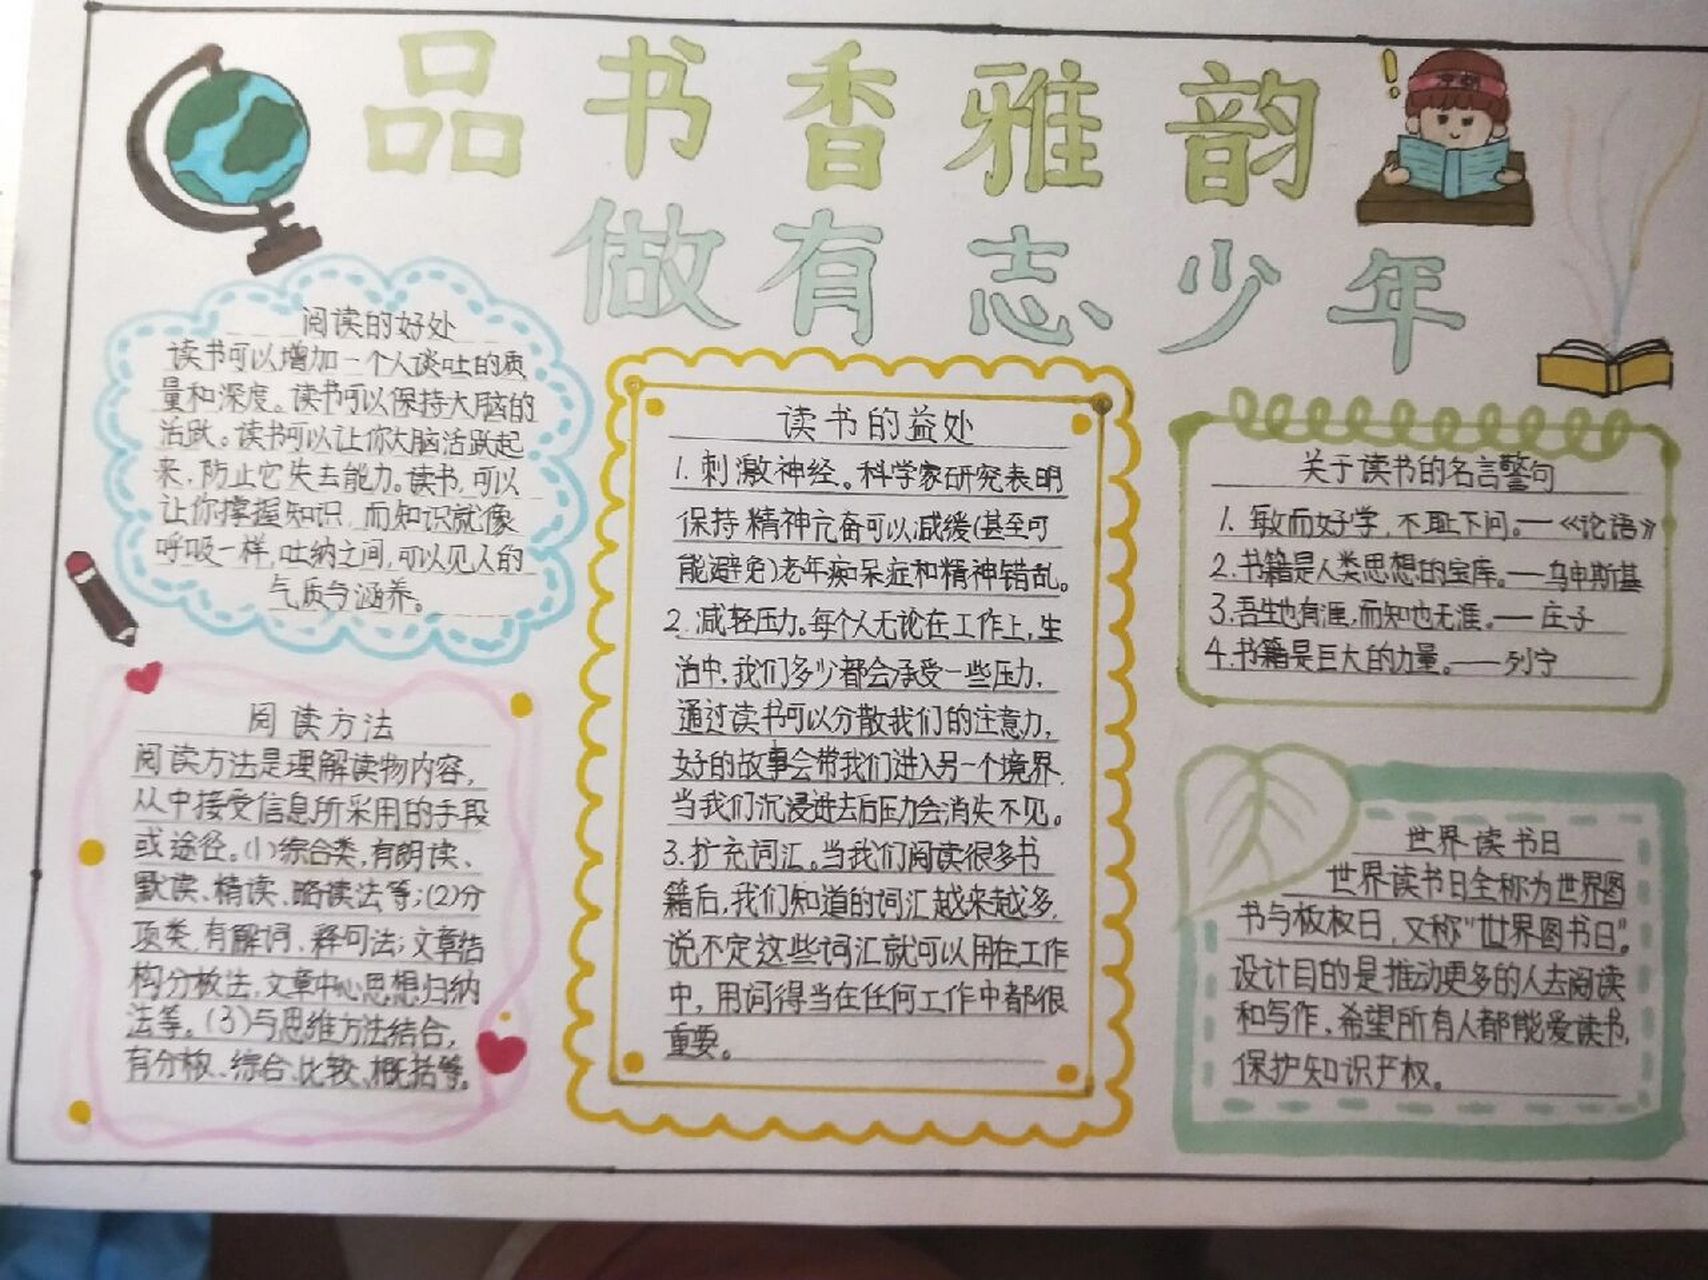 品书香雅韵
做有志少年
阅读的好处
读书可以增加一个人谈吐的质
量和深度。读书可以保持大脑的
活跃。读书可以让你大脑活跃起
来,防止它失去能力。读书,可以
让你掌握知识,而知识就像
呼吸一样,吐纳之间,可以见人的
气质与涵养。
阅读方法
阅读方法是理解读物内容,
从中接受信息所采用的手段
或途径。(1)综合类,有朗读、
默读、精读、略读法等;(2)分
项类,有解词、释句法;文章结
构分析法,文章中心思想归纳
法等。(3)与思维方法结合,
有分析、综合、比较、概括等。
读书的益处
1. 刺激神经。科学家研究表明
保持精神亢奋可以减缓(甚至可
能避免)老年痴呆症和精神错乱。
2. 减轻压力。每个人无论在工作上,生
活中,我们多少都会承受一些压力,
通过读书可以分散我们的注意力,
好的故事会带我们进入另一个境界.
当我们沉浸进去后压力会消失不见。
3.扩充词汇。当我们阅读很多书
籍后,我们知道的词汇越来越多,
说不定这些词汇就可以用在工作
中,用词得当在任何工作中都很
重要。
关于读书的名言警句
1. 敏而好学,不耻下问。—《论语》
2.书籍是人类思想的宝库。—乌申斯基
3.吾生也有涯,而知也无涯。—庄子
4.书籍是巨大的力量。——列宁
世界读书日
世界读书日全称为世界图
书与版权日,又称“世界图书日”。
设计目的是推动更多的人去阅读
和写作,希望所有人都能爱读书,
保护知识产权。